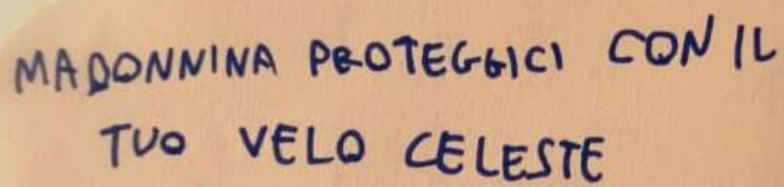 MADONNINA PROTEGGICI CON IL
TUO VELO CELESTE